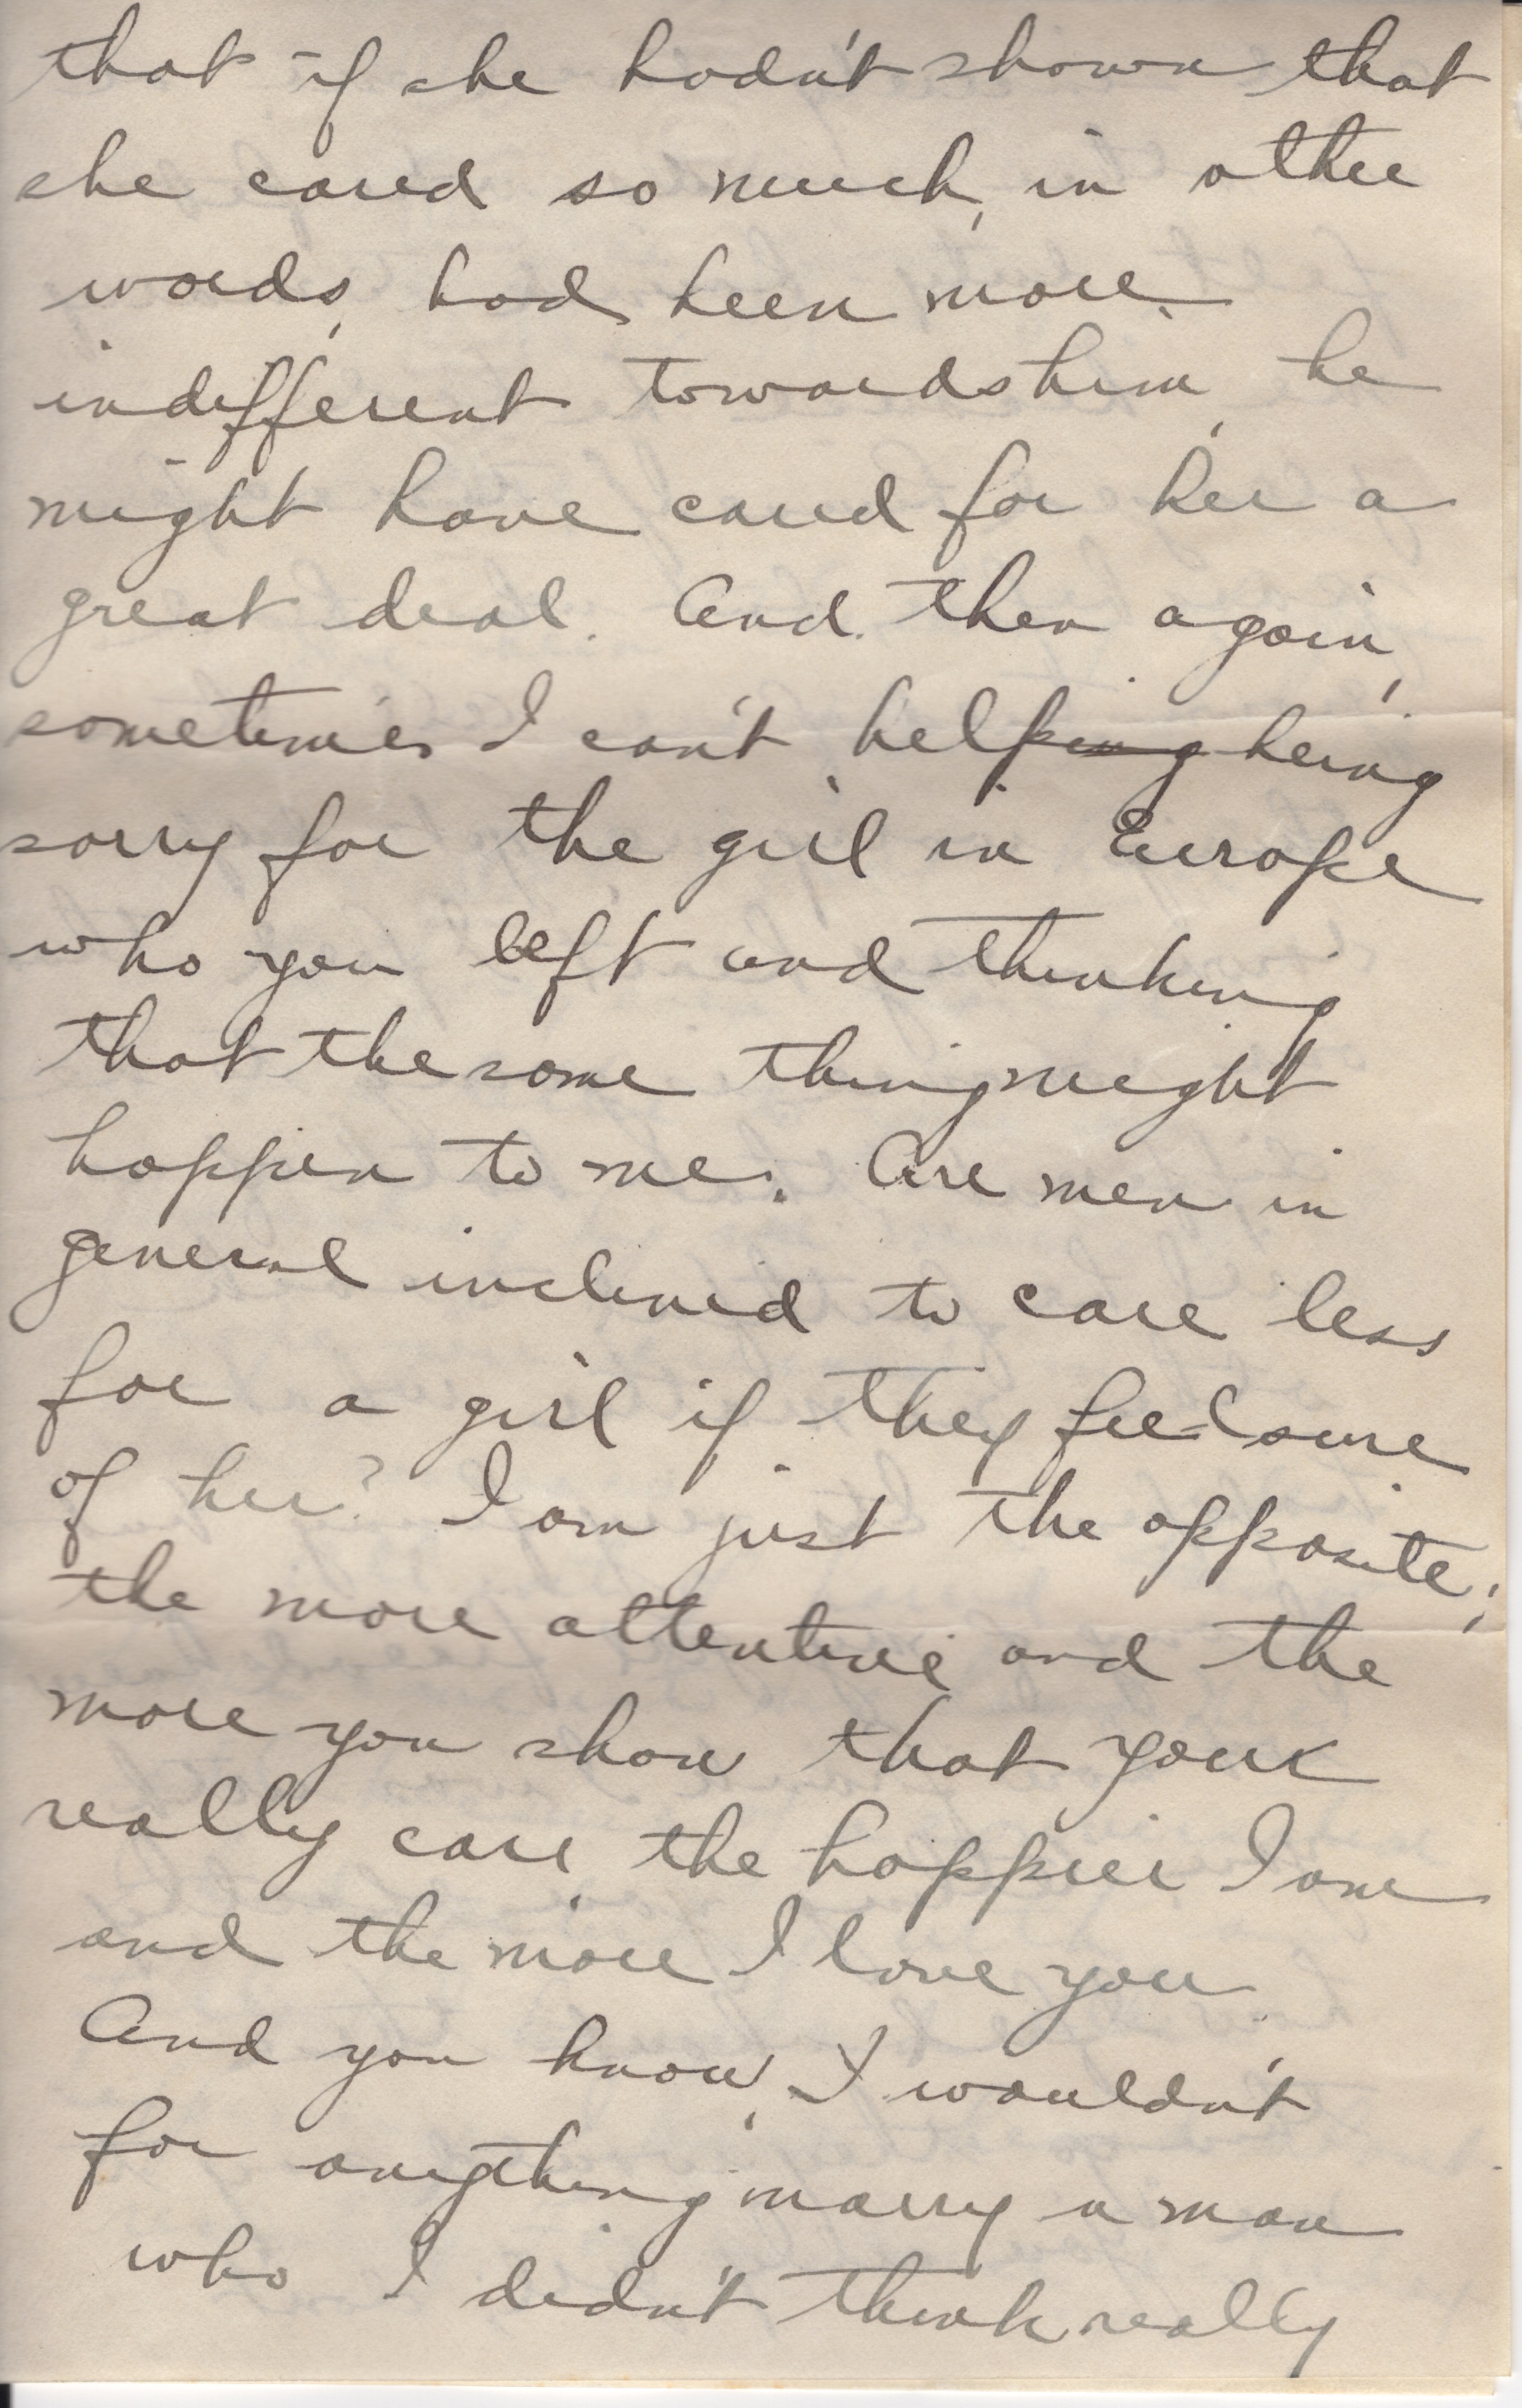 that if she hadn't shown that
she cared so much, in other
words, had been more
indifferent towards him, he
might have cared for her a
great deal. And then again,
sometimes I can't help~~ing~~ being
sorry for the girl in Europe
who you left and thinking
that the same thing might
happen to me. Are men in
general inclined to care less
for a girl if they feel sure
of her? I am just the opposite;
the more attentive and the
more you show that you
really care, the happier I am
and the more I love you.
And you know, I wouldn't
for anything marry a man
who I didn't think really